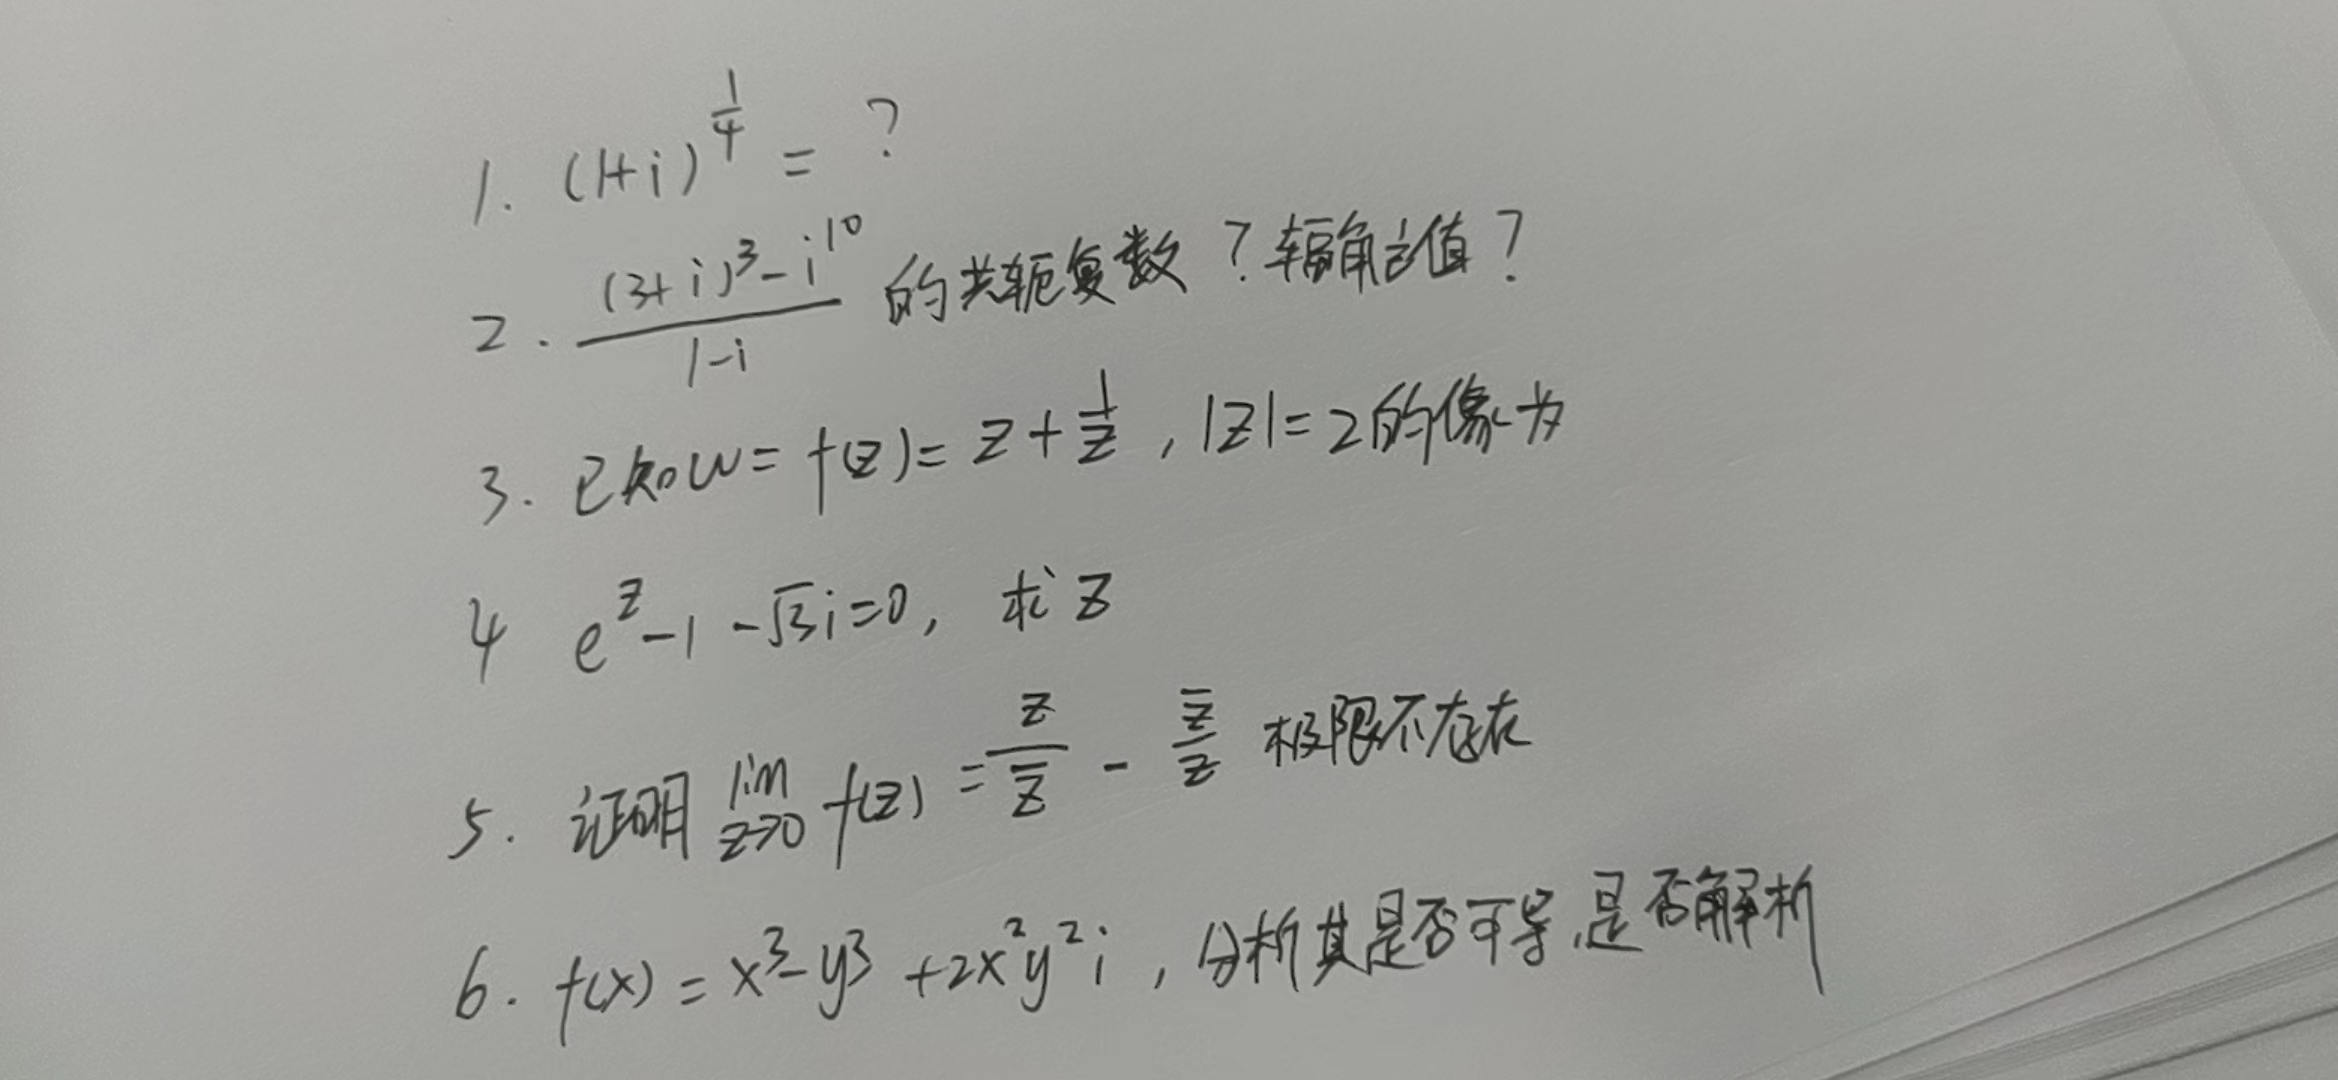 1. (1+i)^{\frac{1}{4}} = ?
2. \frac{(3+i)^3-i^{10}}{1-i} 的共轭复数?辐角主值?
3. 已知w=f(z)=z+\frac{1}{z},|z|=2的像为
4 e^z-1-\sqrt{3}i=0,求z
5. 证明\lim_{z→0} f(z)=\frac{z}{\overline{z}}-\frac{\overline{z}}{z} 极限不存在
6. f(x)=x^3-y^3+2x^2y^2i,分析其是否可导,是否解析